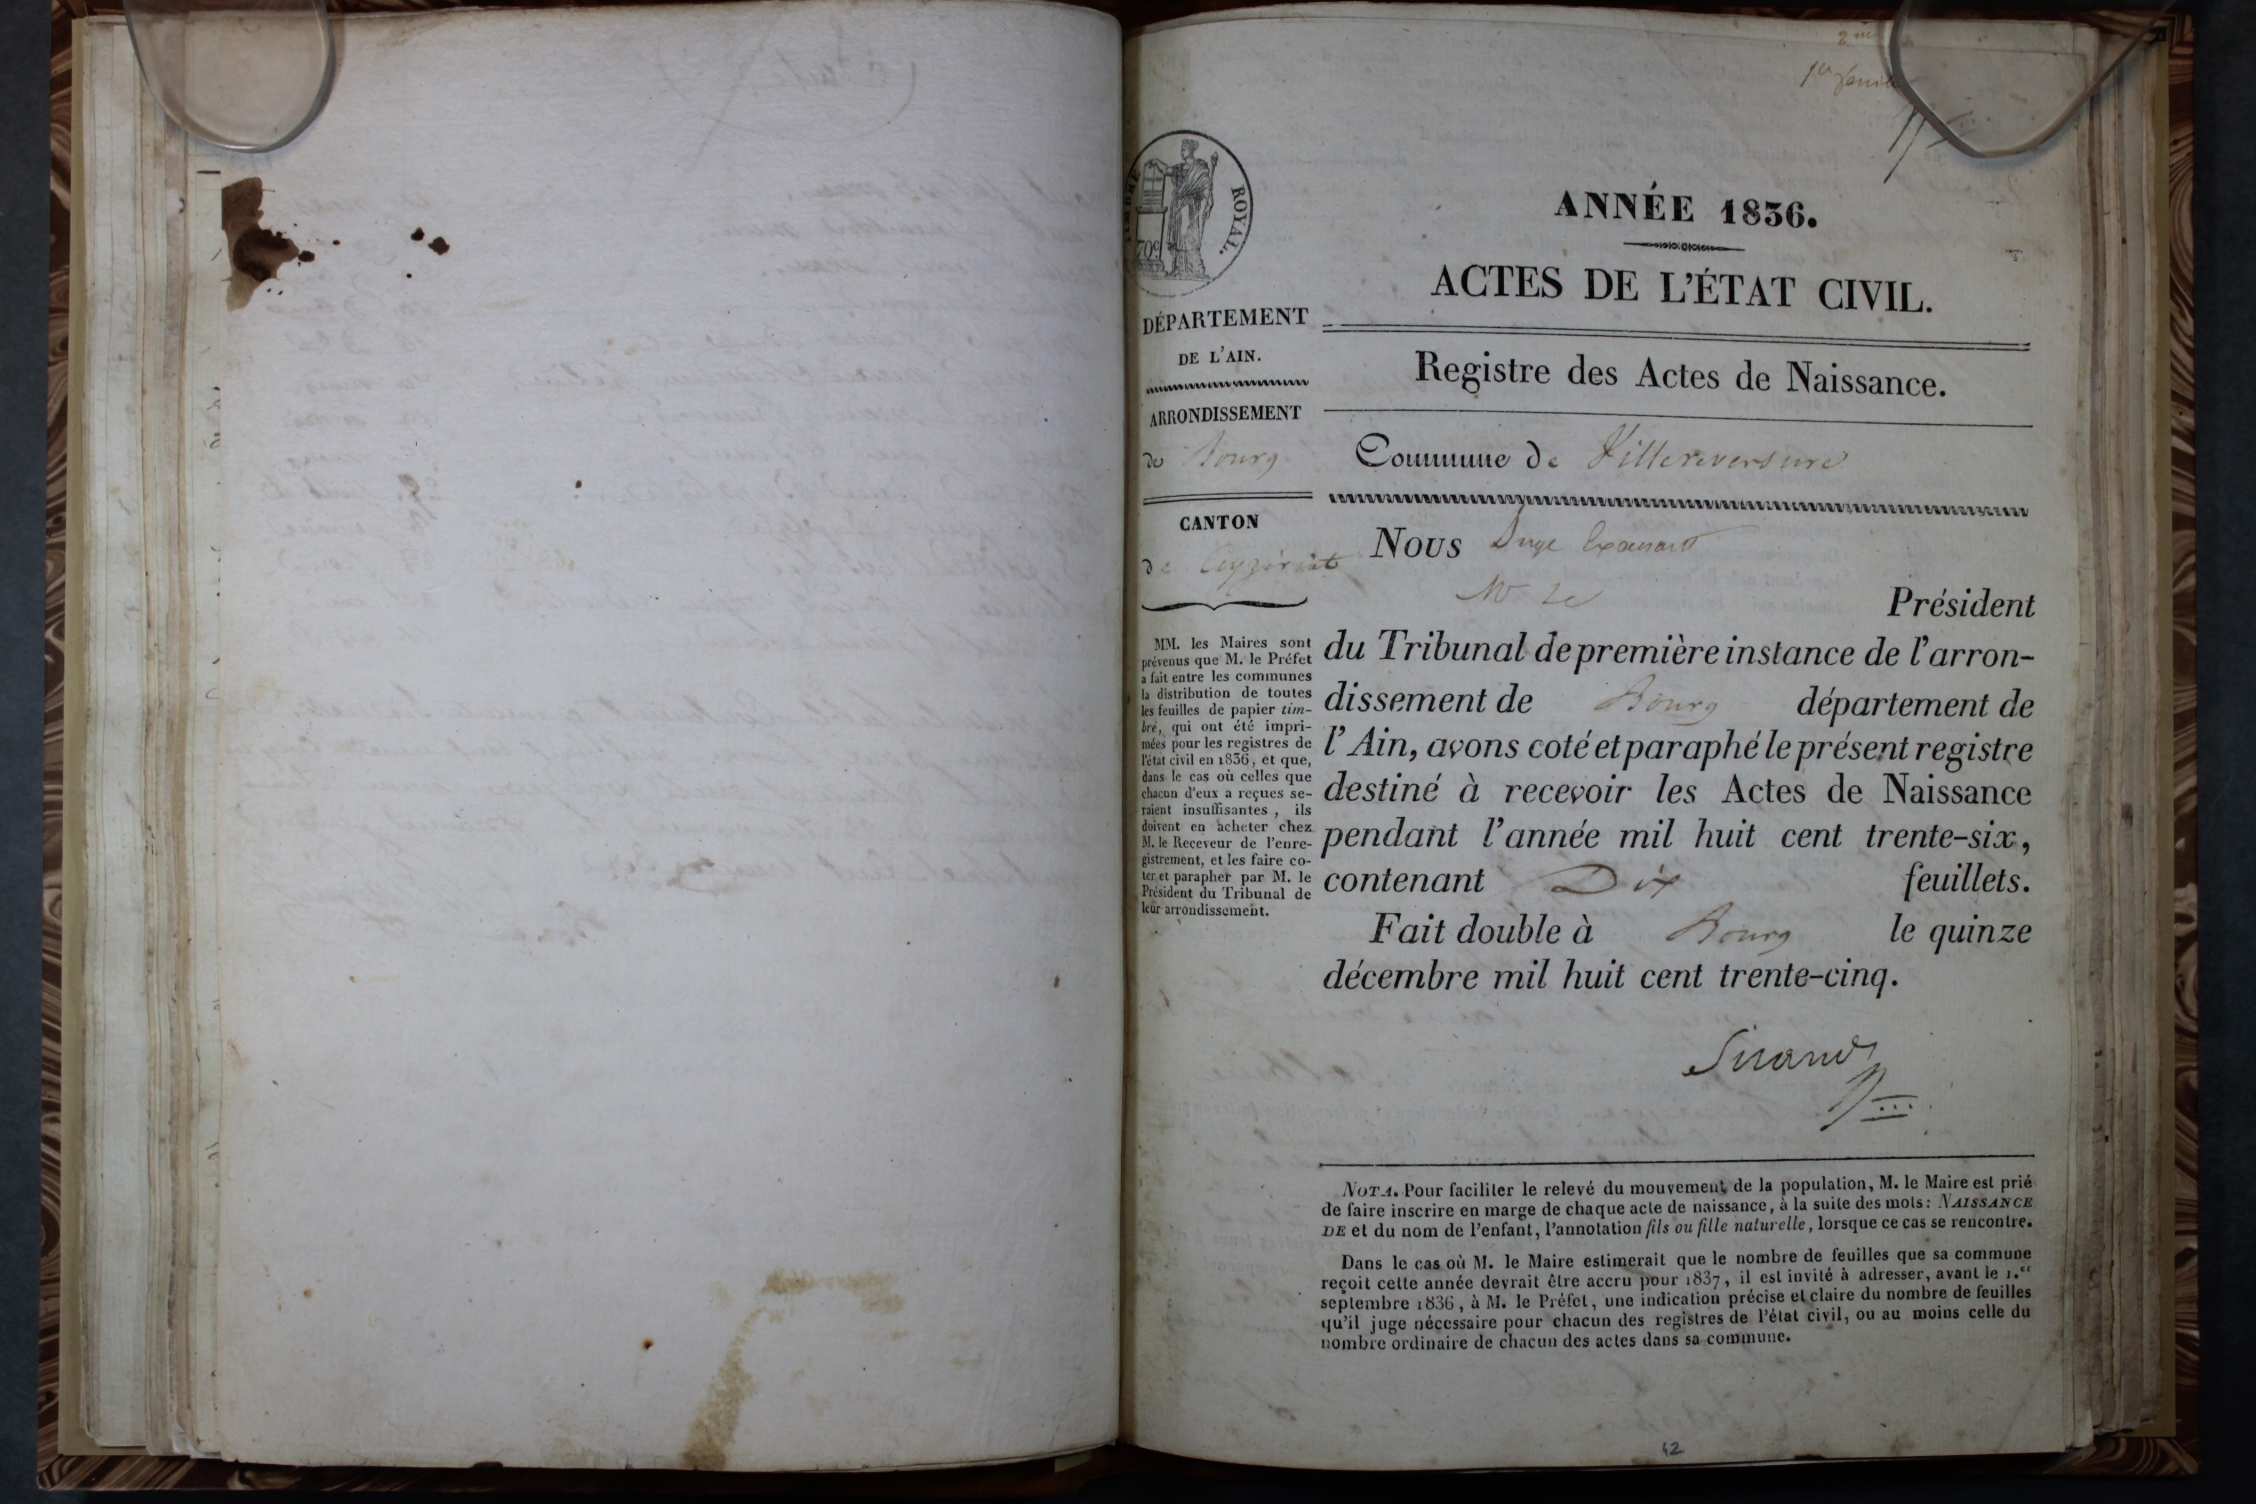 2me
1er
TIMBRE ROYAL.
70c
ANNÉE 1836.
ACTES DE L'ÉTAT CIVIL.
Registre des Actes de Naissance.
Commune de Villereversure
DÉPARTEMENT
DE L'AIN.
ARRONDISSEMENT
de Bourg
CANTON
de Ceyzériat
MM. les Maires sont
prévenus que M. le Préfet
a fait entre les communes
la distribution de toutes
les feuilles de papier tim-
bré, qui ont été impri-
mées pour les registres de
l'état civil en 1836, et que,
dans le cas où celles que
chacun d'eux a reçues se-
raient insuffisantes, ils
doivent en acheter chez
M. le Receveur de l'enre-
gistrement, et les faire co-
ter et parapher par M. le
Président du Tribunal de
leur arrondissement.
Nous Juge
Mr le Président
du Tribunal de première instance de l'arron-
dissement de Bourg département de
l'Ain, avons coté et paraphé le présent registre
destiné à recevoir les Actes de Naissance
pendant l'année mil huit cent trente-six,
contenant Dix feuillets.
Fait double à Bourg le quinze
décembre mil huit cent trente-cinq.
Sirand
NOTA. Pour faciliter le relevé du mouvement de la population, M. le Maire est prié
de faire inscrire en marge de chaque acte de naissance, à la suite des mots : NAISSANCE
DE et du nom de l'enfant, l'annotation fils ou fille naturelle, lorsque ce cas se rencontre.
Dans le cas où M. le Maire estimerait que le nombre de feuilles que sa commune
reçoit cette année devrait être accru pour 1837, il est invité à adresser, avant le 1.er
septembre 1836, à M. le Préfet, une indication précise et claire du nombre de feuilles
qu'il juge nécessaire pour chacun des registres de l'état civil, ou au moins celle du
nombre ordinaire de chacun des actes dans sa commune.
42